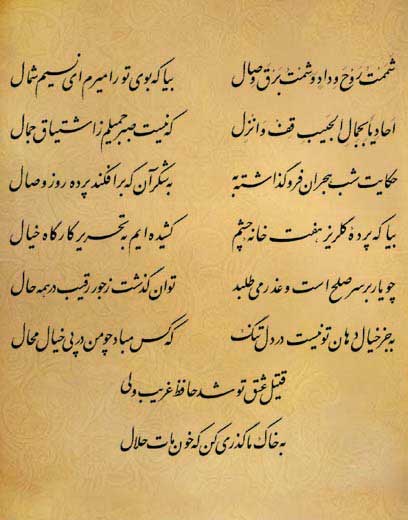 شممت روح وداد و شمت برق وصال بیا که بوی تو را میرم ای نسیم شمال
احادیا بجمال الحبیب قف و انزل که نیست صبر جمیلم ز اشتیاق جمال
حکایت شب هجران فروگذاشته به به شکر آن که برافکند پرده روز وصال
بیا که پرده گلریز هفت خانه چشم کشیده ایم به تحریر کارگاه خیال
چو یار بر سر صلح است و عذر می طلبد توان گذشت ز جور رقیب در همه حال
به جز خیال دهان تو نیست در دل تنگ که کس مباد چو من در پی خیال محال
قتیل عشق تو شد حافظ غریب ولی
به خاک ما گذری کن که خون مات حلال